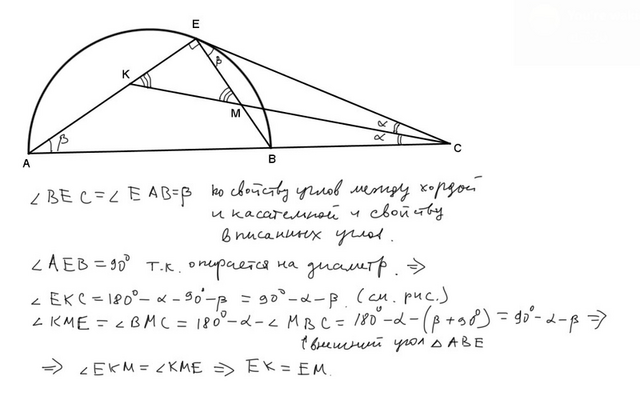 E
K
β
M
α
β
α
A
B
C
∠BEC = ∠EAB = β по свойству углов между хордой
и касательной и свойству
вписанных углов.
∠AEB = 90° т.к. опирается на диаметр. ⇒
∠EKC = 180° − α − 90° − β = 90° − α − β. (см. рис.)
∠KME = ∠BMC = 180° − α − ∠MBC = 180° − α − (β + 90°) = 90° − α − β ⇒
внешний угол △ABE
⇒ ∠EKM = ∠KME ⇒ EK = EM.